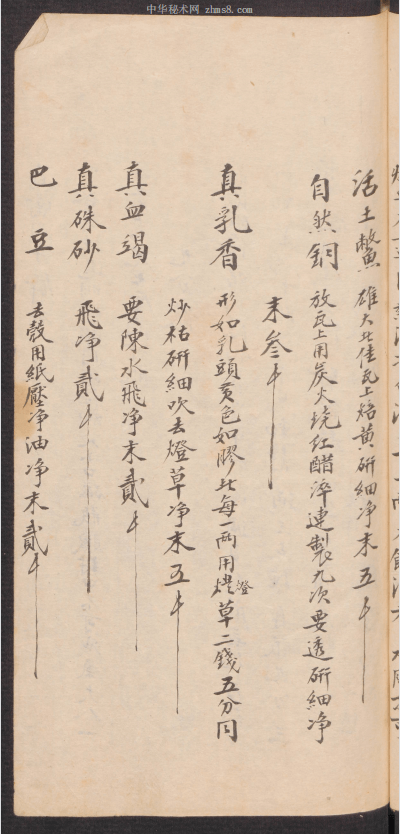 中华秘术网 zhms8.com
活土鱉 雄大北佳瓦上焙黄研細净末五
自然銅 放瓦上用炭火燒紅醋淬連製九次要透研細净
末叁
真乳香 形如乳頭黄色如膠 每一两用燈草二錢五分同
炒枯研細吹去燈草净末五
真血竭 要陳水飛净末貳
真硃砂 飛净貳
巴豆 去殻用紙壓净油净末貳